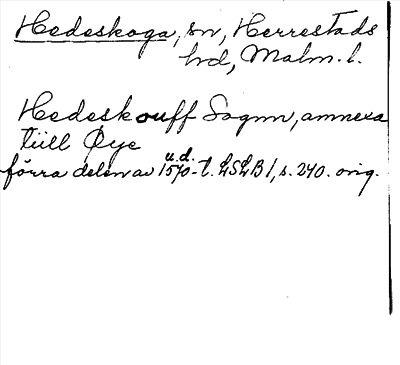 Hedeskoga, sn, Herrestads
hd, Malm. l.
Hedeskouff Sognn, annexa
tiill Øye
u.d.
förra delen av 1570-t. LSLB 1, s. 240. orig.